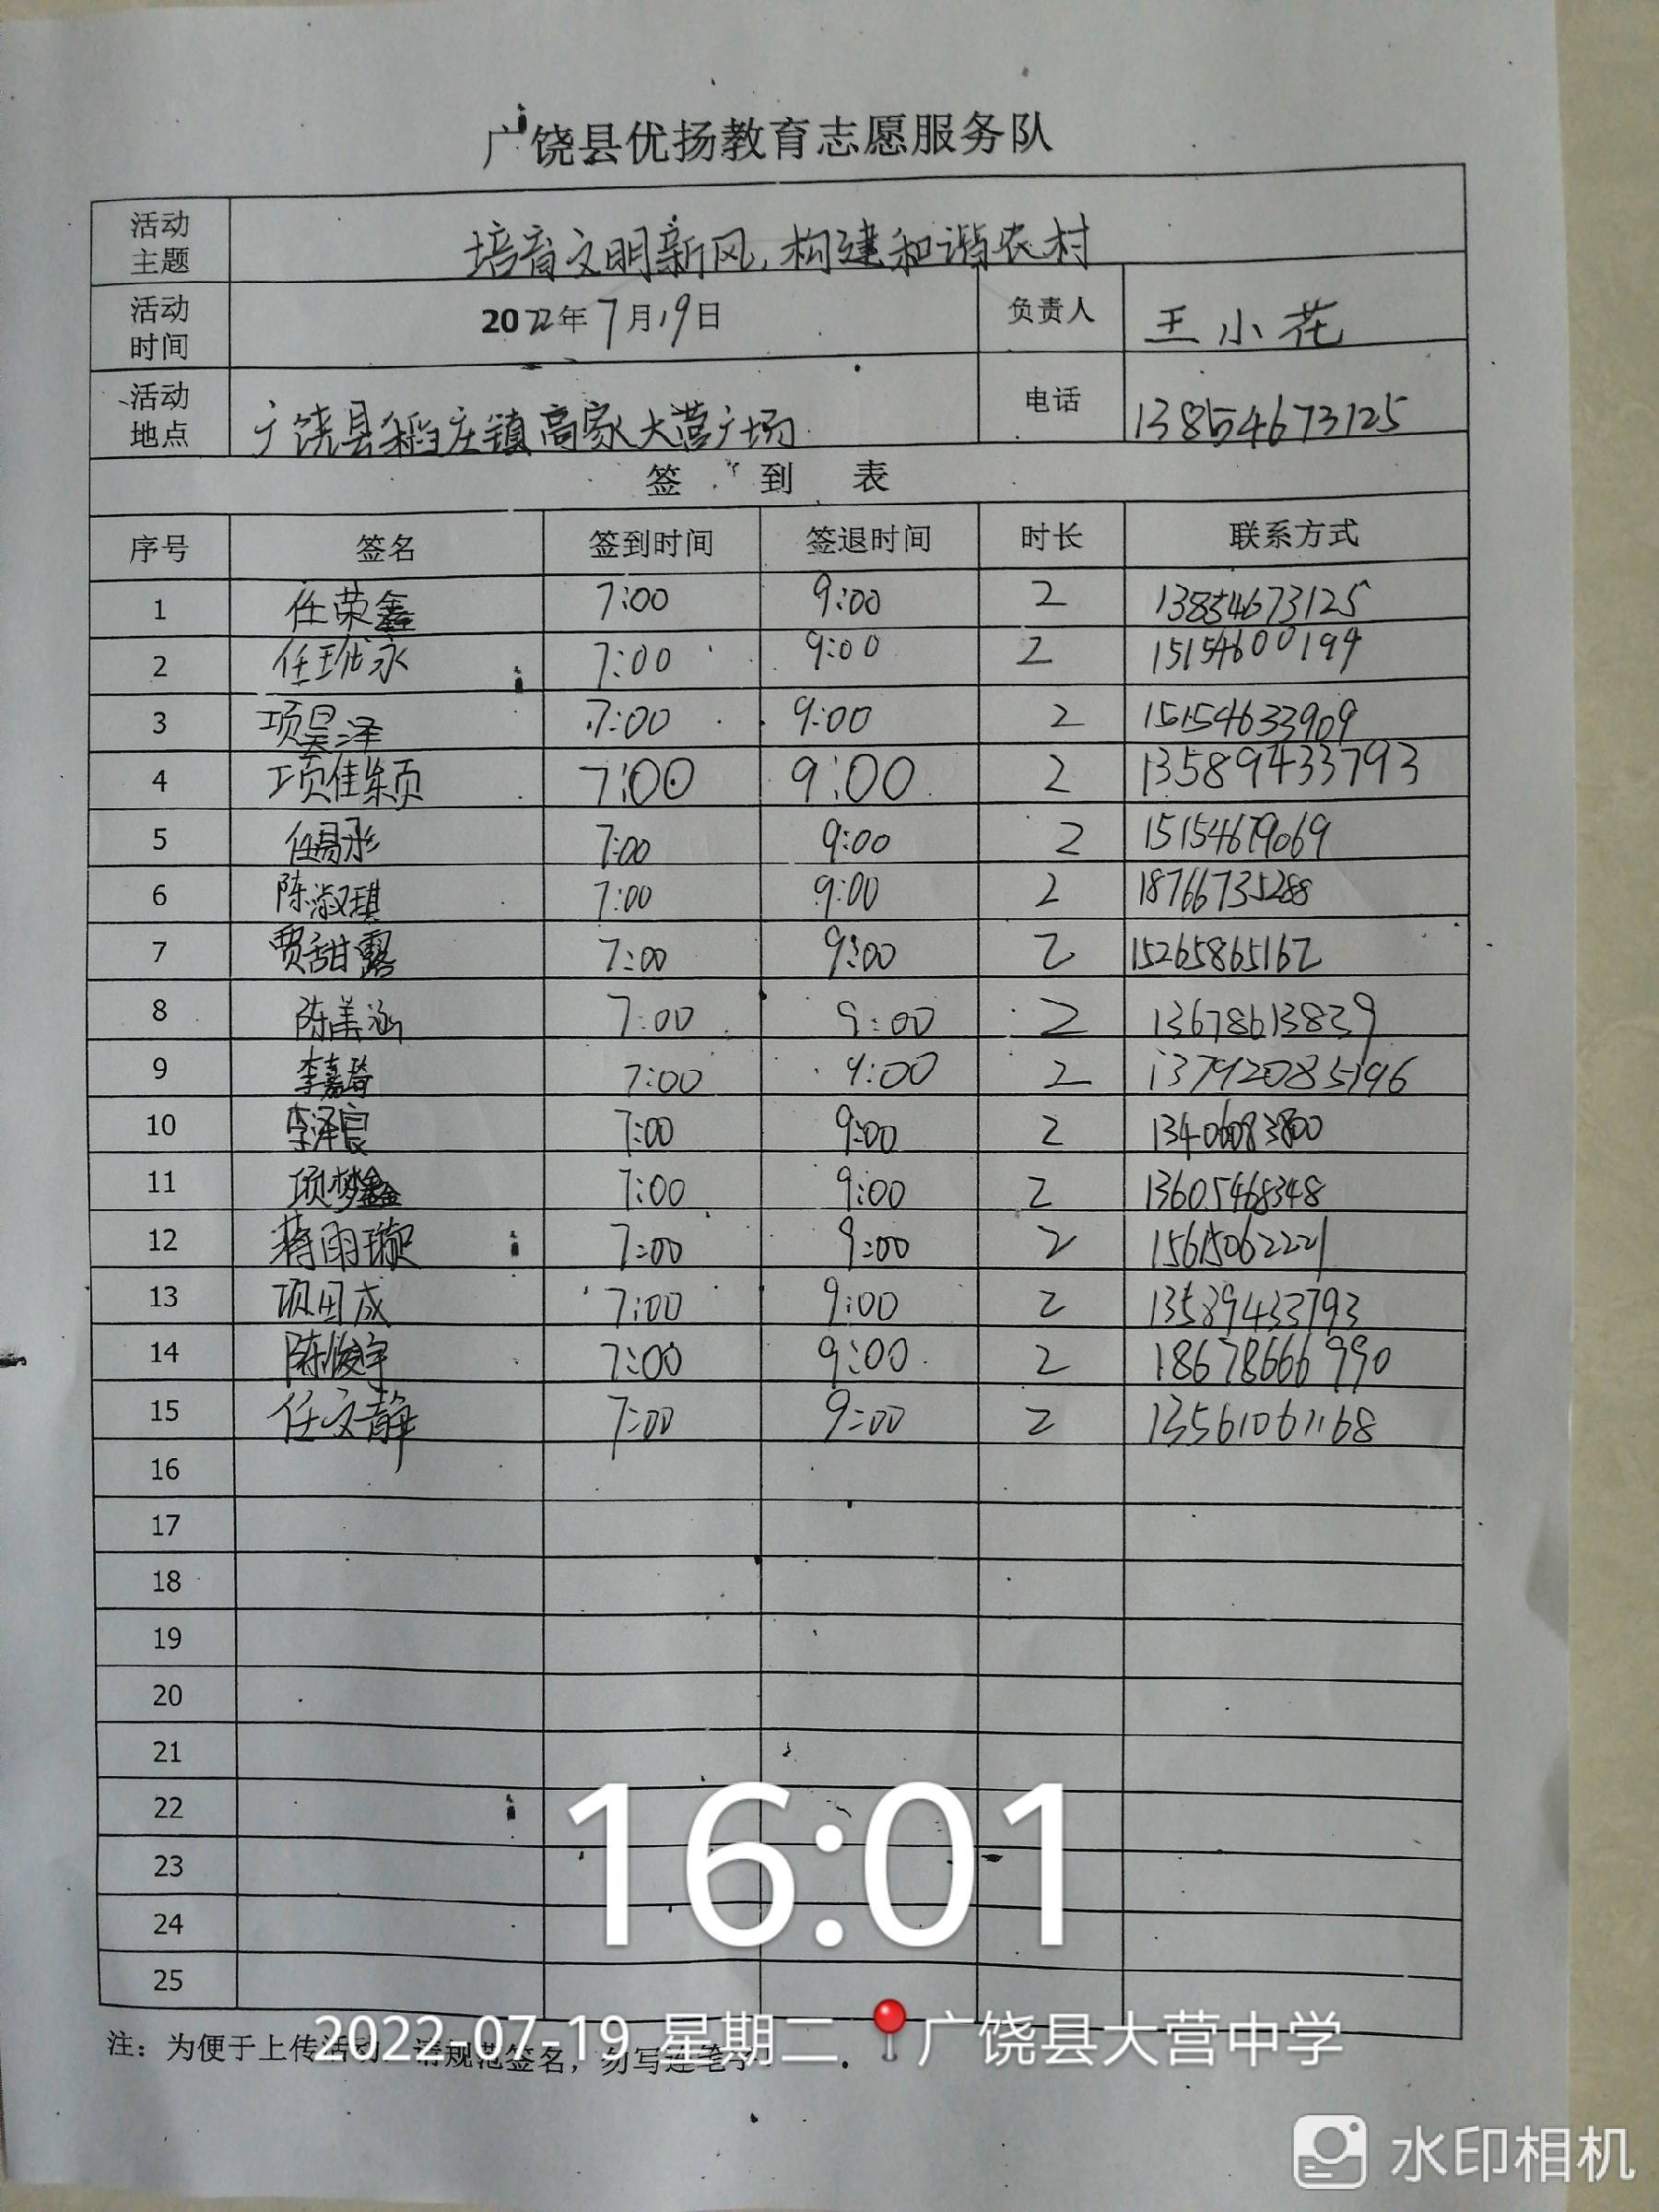 广饶县优扬教育志愿服务队
活动主题 培育文明新风,构建和谐农村
活动时间 2022年7月19日 负责人 王小花
活动地点 广饶县稻庄镇高家大营广场 电话 13854673125
签到表
序号 签名 签到时间 签退时间 时长 联系方式
1 任荣鑫 7:00 9:00 2 13854673125
2 任玳永 7:00 9:00 2 15154600199
3 项昊泽 7:00 9:00 2 15154633909
4 项佳颖 7:00 9:00 2 13589433793
5 7:00 9:00 2 15154679069
6 陈淑琪 7:00 9:00 2 18766735288
7 贾甜露 7:00 9:00 2 15265865162
8 陈美涵 7:00 9:00 2 13678613839
9 李嘉琦 7:00 9:00 2 13792085196
10 李泽良 7:00 9:00 2
11 项梦鑫 7:00 9:00 2 13605468348
12 蒋雨璇 7:00 9:00 2 15615062221
13 项田成 7:00 9:00 2 13589433793
14 陈俊宇 7:00 9:00 2 18678666990
15 任文静 7:00 9:00 2 13561061168
16
17
18
19
20
21
22
23
24
25
16:01
2022-07-19 星期二 广饶县大营中学
注:为便于上传活动 请规范签名,勿写连笔字
水印相机